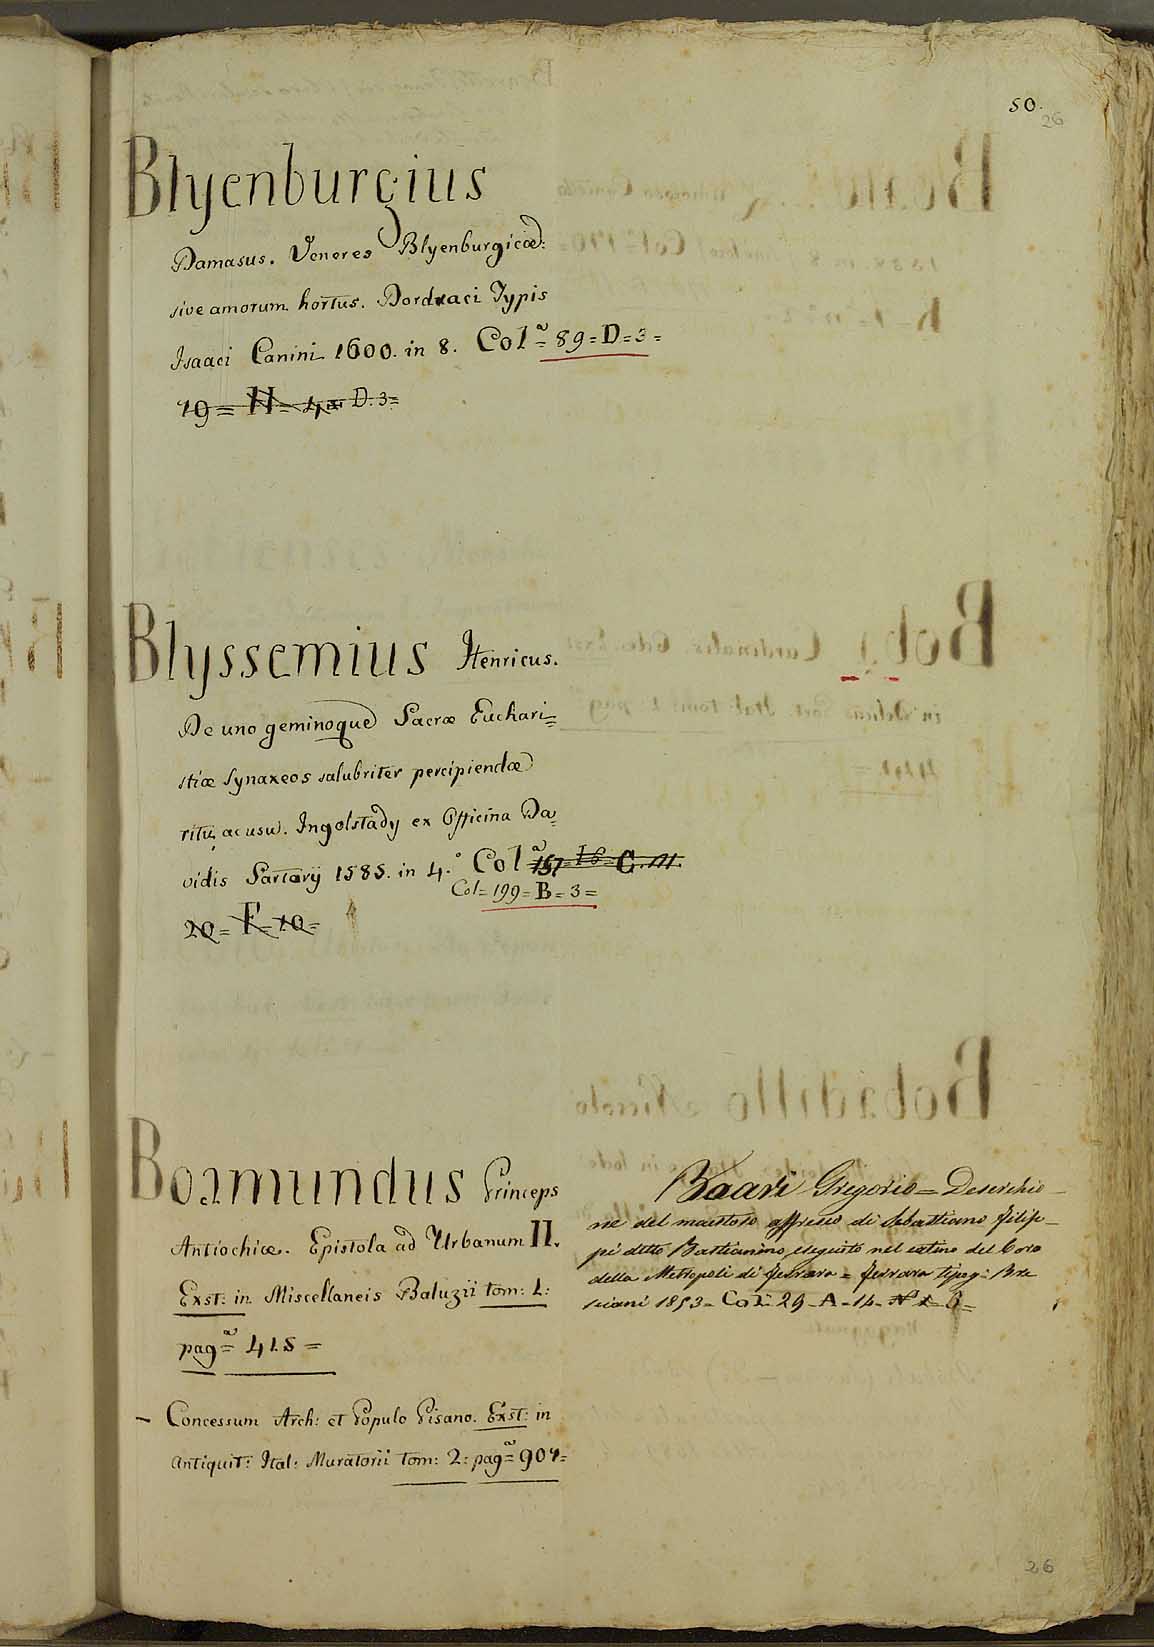 50.
26
Blyenburgius
Damasus. Veneres Blyenburgicæ:
sive amorum hortus. Dordraci Typis
Isaaci Canini 1600. in 8. Colᵃ= 89=D=3=
19= H= 4= D.3=
Blyssemius Henricus.
De uno geminoque Sacræ Euchari=
stiæ Synaxeos salubriter percipiendæ
ritu, ac usu. Ingolstadij ex Officina Da=
vidis Sartorij 1585. in 4.° Colᵃ 157=
Col= 199=B=3=
20= F=10=
Boamundus Princeps
Antiochiæ. Epistola ad Urbanum II.
Exst: in Miscellaneis Baluzii tom: 1:
pagᵃ= 415=
– Concessum Arch: et Populo Pisano. Exst: in
Antiquit: Ital: Muratorii tom: 2: pagᵃ= 907=
Boari Gregorio= Descrizio-
ne del maestoso affresco di Sebastiano Filip-
pi detto Bastianino eseguito nel catino del Coro
della Metropoli di Ferrara= Ferrara tipog: Bre
sciani 1853= Col= 29-A-14-
26